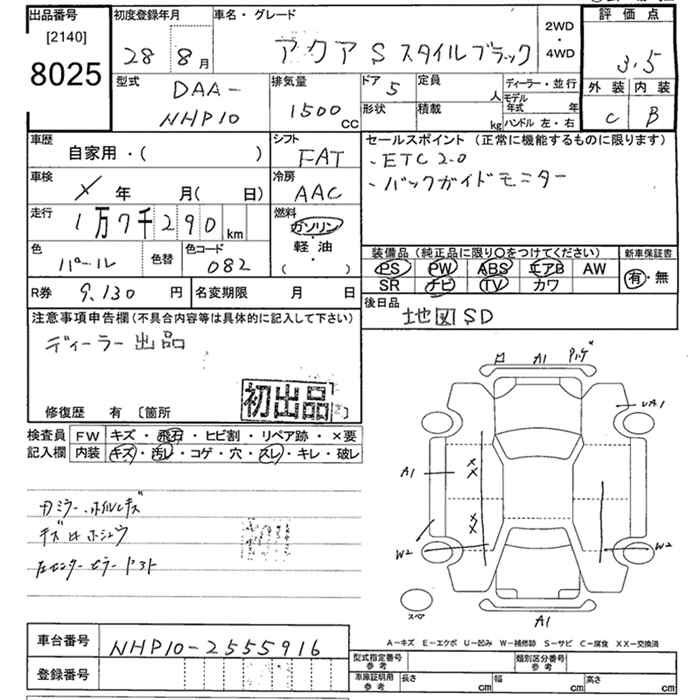 出品番号 初度登録年月 車名・グレード 2WD・4WD 評価点
[2140]
8025 28 年 8月 アクア S スタイルブラック 3.5
型式 DAA-NHP10 排気量 1500 CC ドア 5 定員 人 ディーラー・並行 外装 内装
形状 積載 kg モデル年式 年 ハンドル 左・右 C B
車歴 自家用・( ) シフト FAT セールスポイント (正常に機能するものに限ります)
・ETC2.0
車検 X 年 月( 日) 冷房 AAC ・バックガイドモニター
走行 1万7千290km 燃料 ガソリン・軽油・( )
色 パール 色替 色コード 082 装備品 (純正品に限り○をつけてください) 新車保証書
PS PW ABS エアB AW 有・無
R券 9,130円 名変期限 月 日 SR ナビ TV カワ
注意事項申告欄(不具合内容等は具体的に記入して下さい) 後日品 地図SD
ディーラー出品
初出品
修復歴 有 〔箇所
検査員 FW キズ・飛石・ヒビ割・リペア跡・×要
記入欄 内装 キズ・汚レ・コゲ・穴・スレ・キレ・破レ
ロ A1
UA1
A1
W2 W2
スペア
A1
キズ
A−キズ E−エクボ U−凹み W−補修跡 S−サビ C−腐食 XX−交換済
車台番号 NHP10-2555916
登録番号
型式指定番号 参考 類別区分番号 参考
車庫証明用 参考 長さ cm 幅 cm 高さ cm